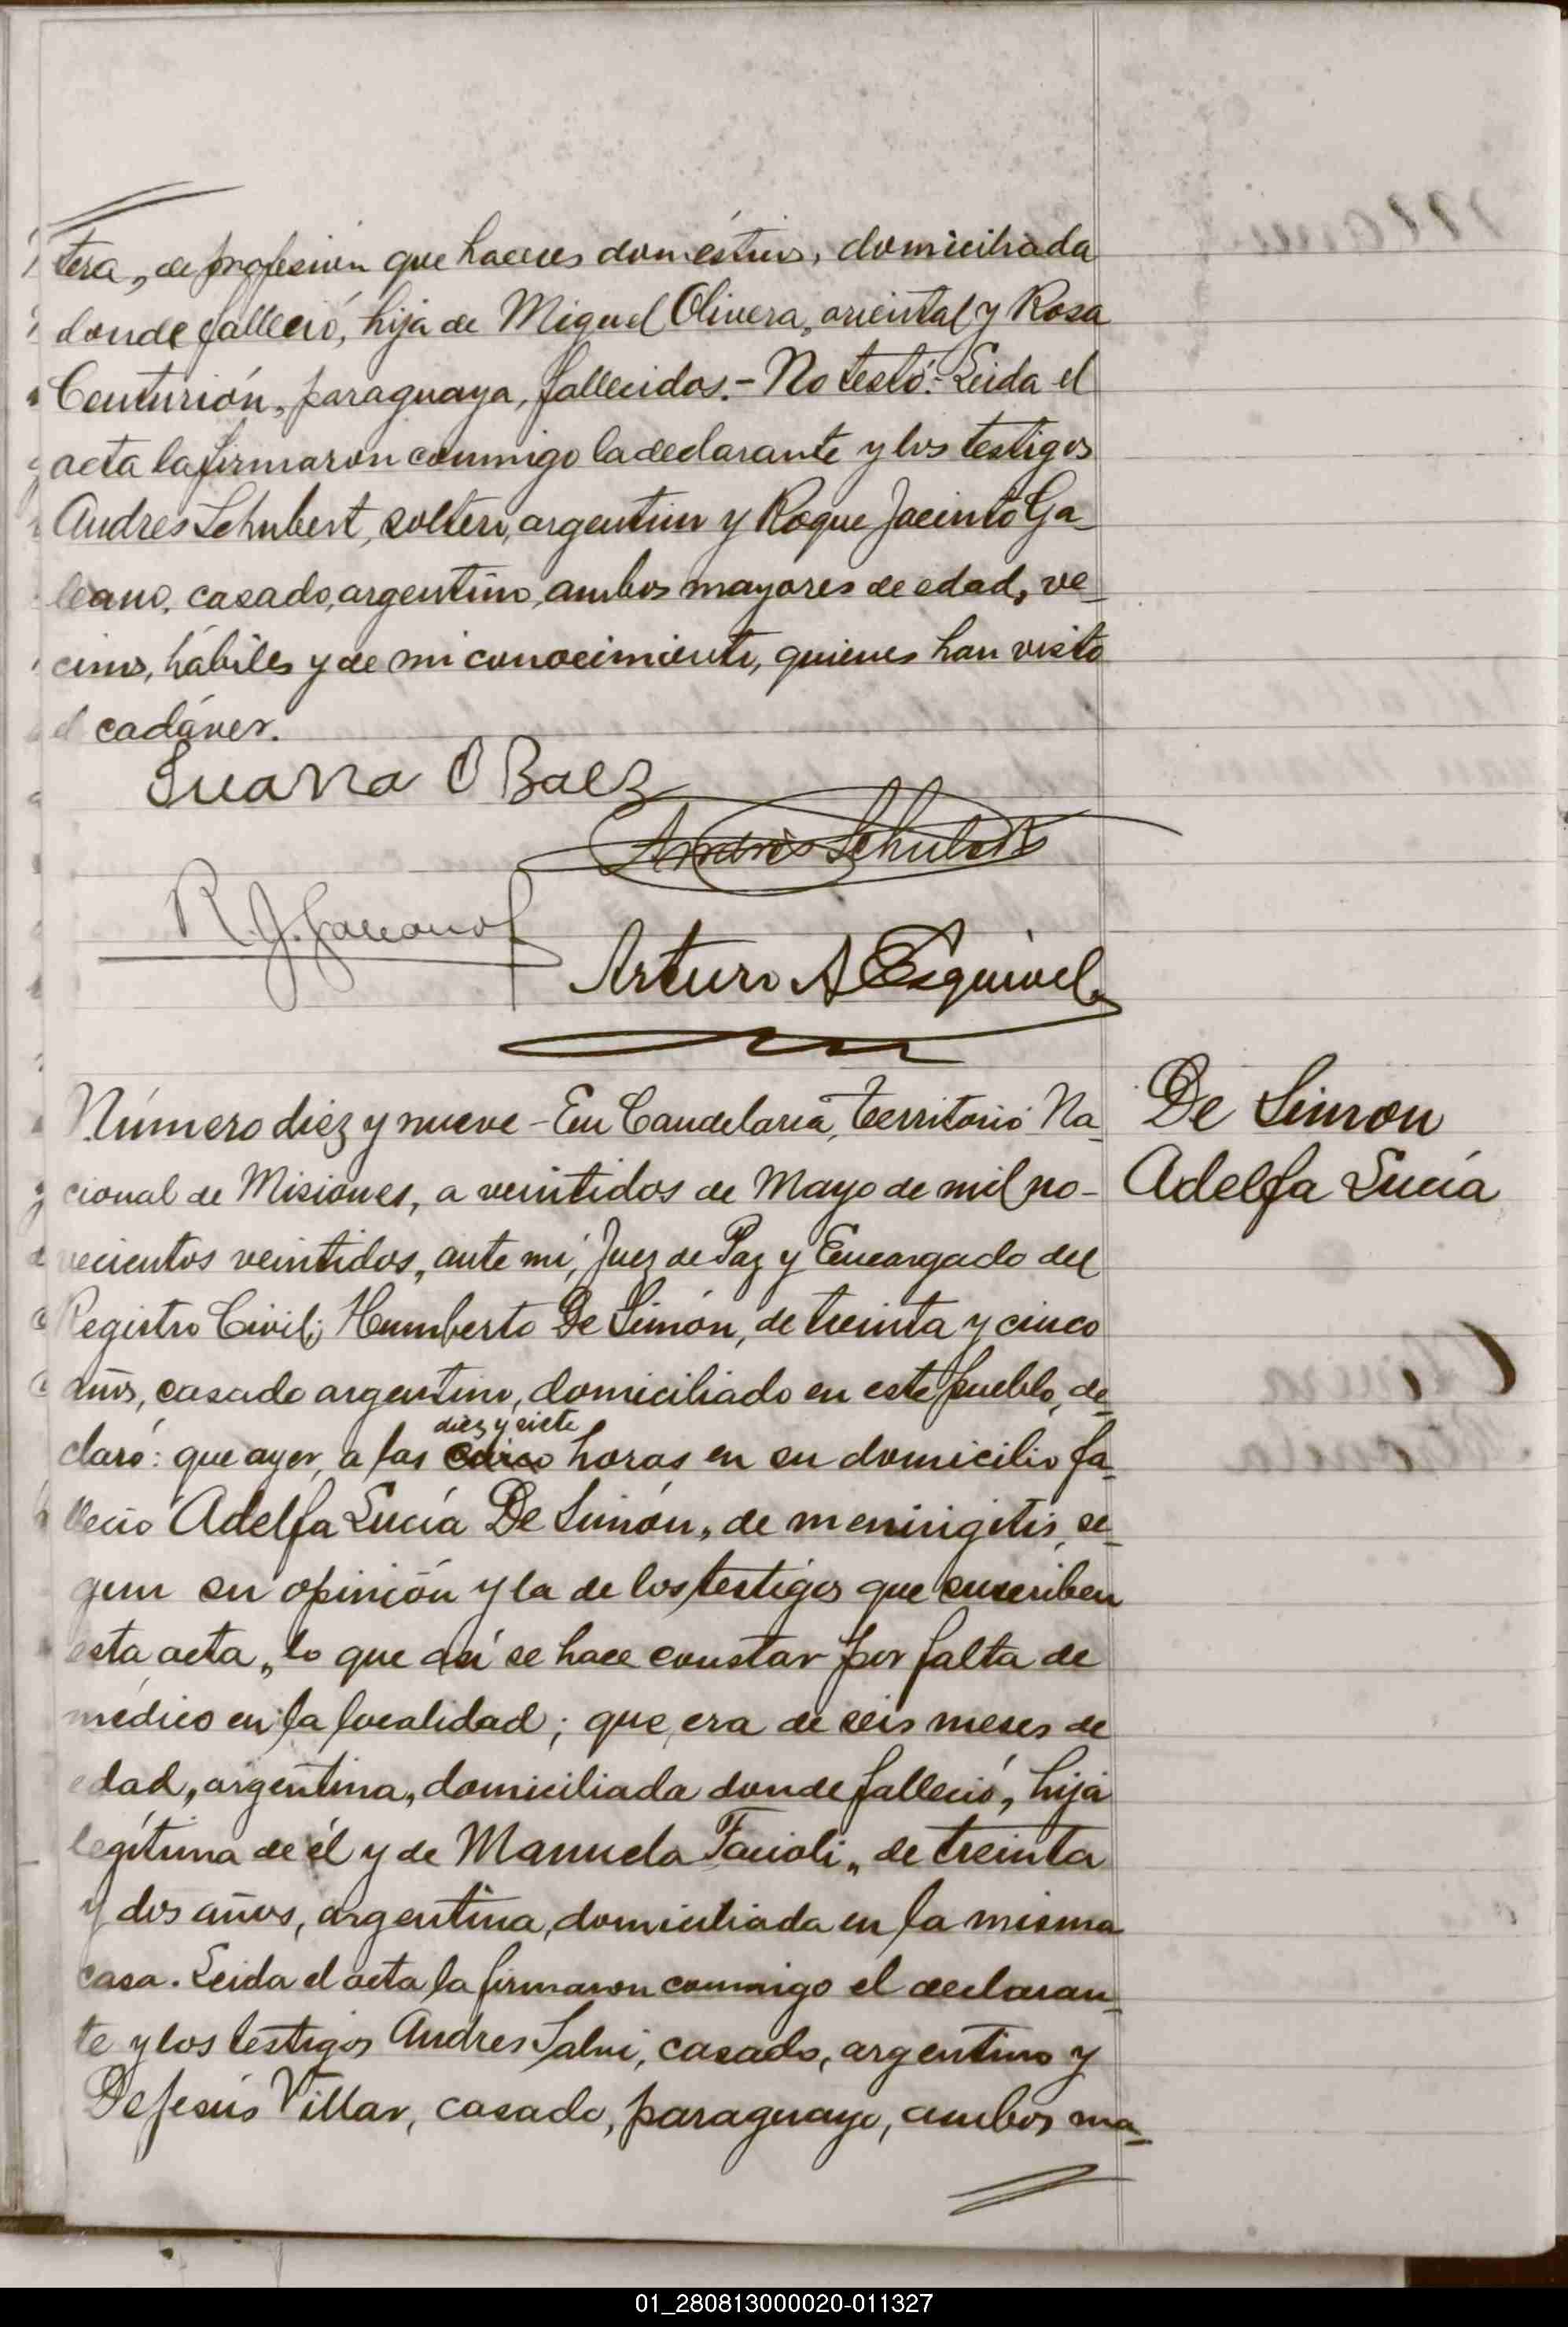 tera, de profesión que haceres domésticos, domiciliada
donde falleció, hija de Miguel Olivera, oriental y Rosa
Centurión, paraguaya, fallecidos.- No testó.- Leida el
acta la firmaron conmigo la declarante y los testigos
Andres Schubert, soltero, argentino y Roque Jacinto Ga-
leano, casado, argentino, ambos mayores de edad, ve-
cinos, hábiles y de mi conocimiento, quienes han visto
el cadáver.
Juana O Baez
Andrés Schubert
R. J. Galeano
Arturo A Esquivel
Número diez y nueve - En Candelaria, territorio Na-
cional de Misiones, a veintidos de Mayo de mil no-
vecientos veintidos, ante mi, Juez de Paz y Encargado del
Registro Civil; Humberto De Simón, de treinta y cinco
años, casado argentino, domiciliado en este pueblo, de-
diez y siete
claró: que ayer, a las horas en su domicilio fa-
lleció Adelfa Lucía De Simón, de meningitis, se-
gun su opinión y la de los testigos que suscriben
esta acta, lo que así se hace constar por falta de
médico en la localidad; que era de seis meses de
edad, argentina, domiciliada donde falleció, hija
legítima de él y de Manuela Facioli, de treinta
y dos años, argentina, domiciliada en la misma
casa. Leida el acta la firmaron conmigo el declaran-
te y los testigos Andres Salvi, casado, argentino y
De Jesús Villar, casado, paraguayo, ambos ma-
De Simon
Adelfa Lucía
01_280813000020-011327